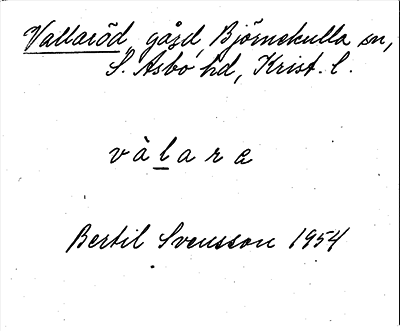 Vallaröd, gård, Björnekulla sn,
S. Åsbo hd, Krist. l.
vàlara
Bertil Svensson 1954